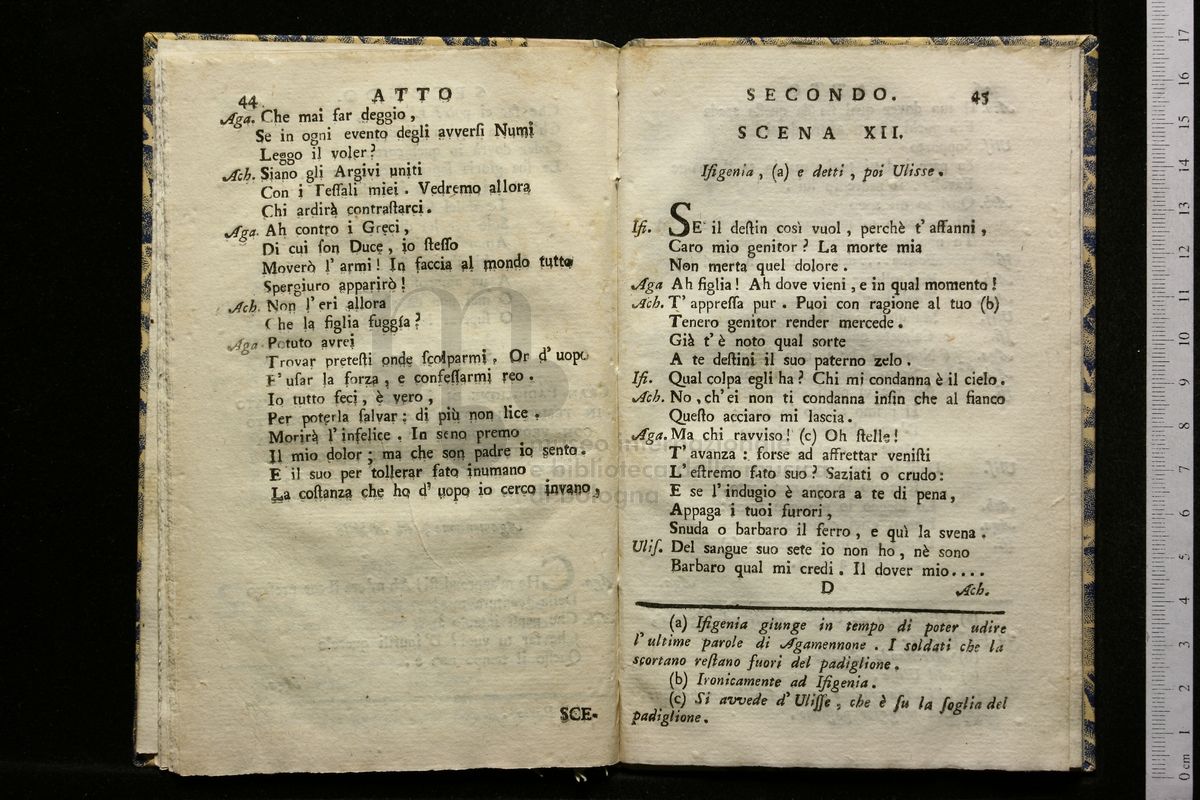 44 ATTO
Aga. Che mai far deggio,
Se in ogni evento degli avverſi Numi
Leggo il voler?
Ach. Siano gli Argivi uniti
Con i Teſſali miei. Vedremo allora
Chi ardirà contraſtarci.
Aga. Ah contro i Greci,
Di cui ſon Duce, io ſteſſo
Moverò l'armi! In faccia al mondo tutto
Spergiuro apparirò!
Ach. Non l'eri allora
Che la figlia fuggía?
Aga. Potuto avrei
Trovar preteſti onde ſcolparmi. Or d'uopo
E' uſar la forza, e confeſſarmi reo.
Io tutto feci, è vero,
Per poterla ſalvar: di più non lice.
Morirà l'infelice. In seno premo
Il mio dolor; ma che son padre io sento.
E il suo per tollerar fato inumano
La coſtanza che ho d'uopo io cerco invano,
SCE-
SECONDO. 45
SCENA XII.
Ifigenia, (a) e detti, poi Ulisse.
Ifi. SE il deſtin così vuol, perchè t'affanni,
Caro mio genitor? La morte mia
Non merta quel dolore.
Aga Ah figlia! Ah dove vieni, e in qual momento!
Ach. T'appreſſa pur. Puoi con ragione al tuo (b)
Tenero genitor render mercede.
Già t'è noto qual sorte
A te deſtini il suo paterno zelo.
Ifi. Qual colpa egli ha? Chi mi condanna è il cielo.
Ach. No, ch'ei non ti condanna inſin che al fianco
Queſto acciaro mi lascia.
Aga. Ma chi ravviso! (c) Oh ſtelle!
T'avanza: forse ad affrettar veniſti
L'eſtremo fato suo? Saziati o crudo:
E se l'indugio è ancora a te di pena,
Appaga i tuoi furori,
Snuda o barbaro il ferro, e quì la svena.
Uliſ. Del sangue suo sete io non ho, nè sono
Barbaro qual mi credi. Il dover mio....
D Ach.
(a) Ifigenia giunge in tempo di poter udire
l'ultime parole di Agamennone. I soldati che la
scortano reſtano fuori del padiglione.
(b) Ironicamente ad Ifigenia.
(c) Si avvede d'Uliſſe, che è ſu la ſoglia del
padiglione.
museo internazionale
e biblioteca della musica
di bologna
17
16
15
14
13
12
11
10
9
8
7
6
5
4
3
2
1
0 cm